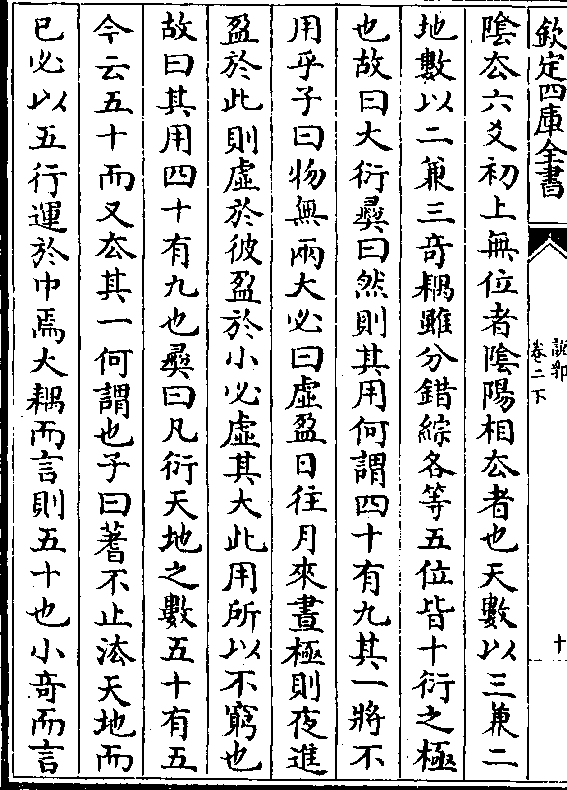 欽定四庫全書
說郛
卷二下
十
陰厺六爻初上無位者陰陽相厺者也天數以三兼二
地數以二兼三奇耦雖分錯綜各等五位皆十衍之極
也故曰大衍彞曰然則其用何謂四十有九其一將不
用乎子曰物無兩大必曰虛盈日往月來晝極則夜進
盈於此則虛於彼盈於小必虛其大此用所以不窮也
故曰其用四十有九也彞曰凡衍天地之數五十有五
今云五十而又厺其一何謂也子曰蓍不止法天地而
已必以五行運於中焉大耦而言則五十也小奇而言